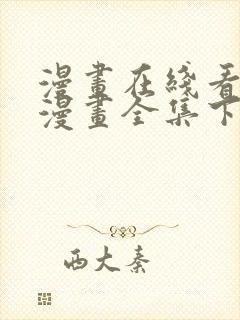 漫畫在綫看
漫畫全集下
西大秦